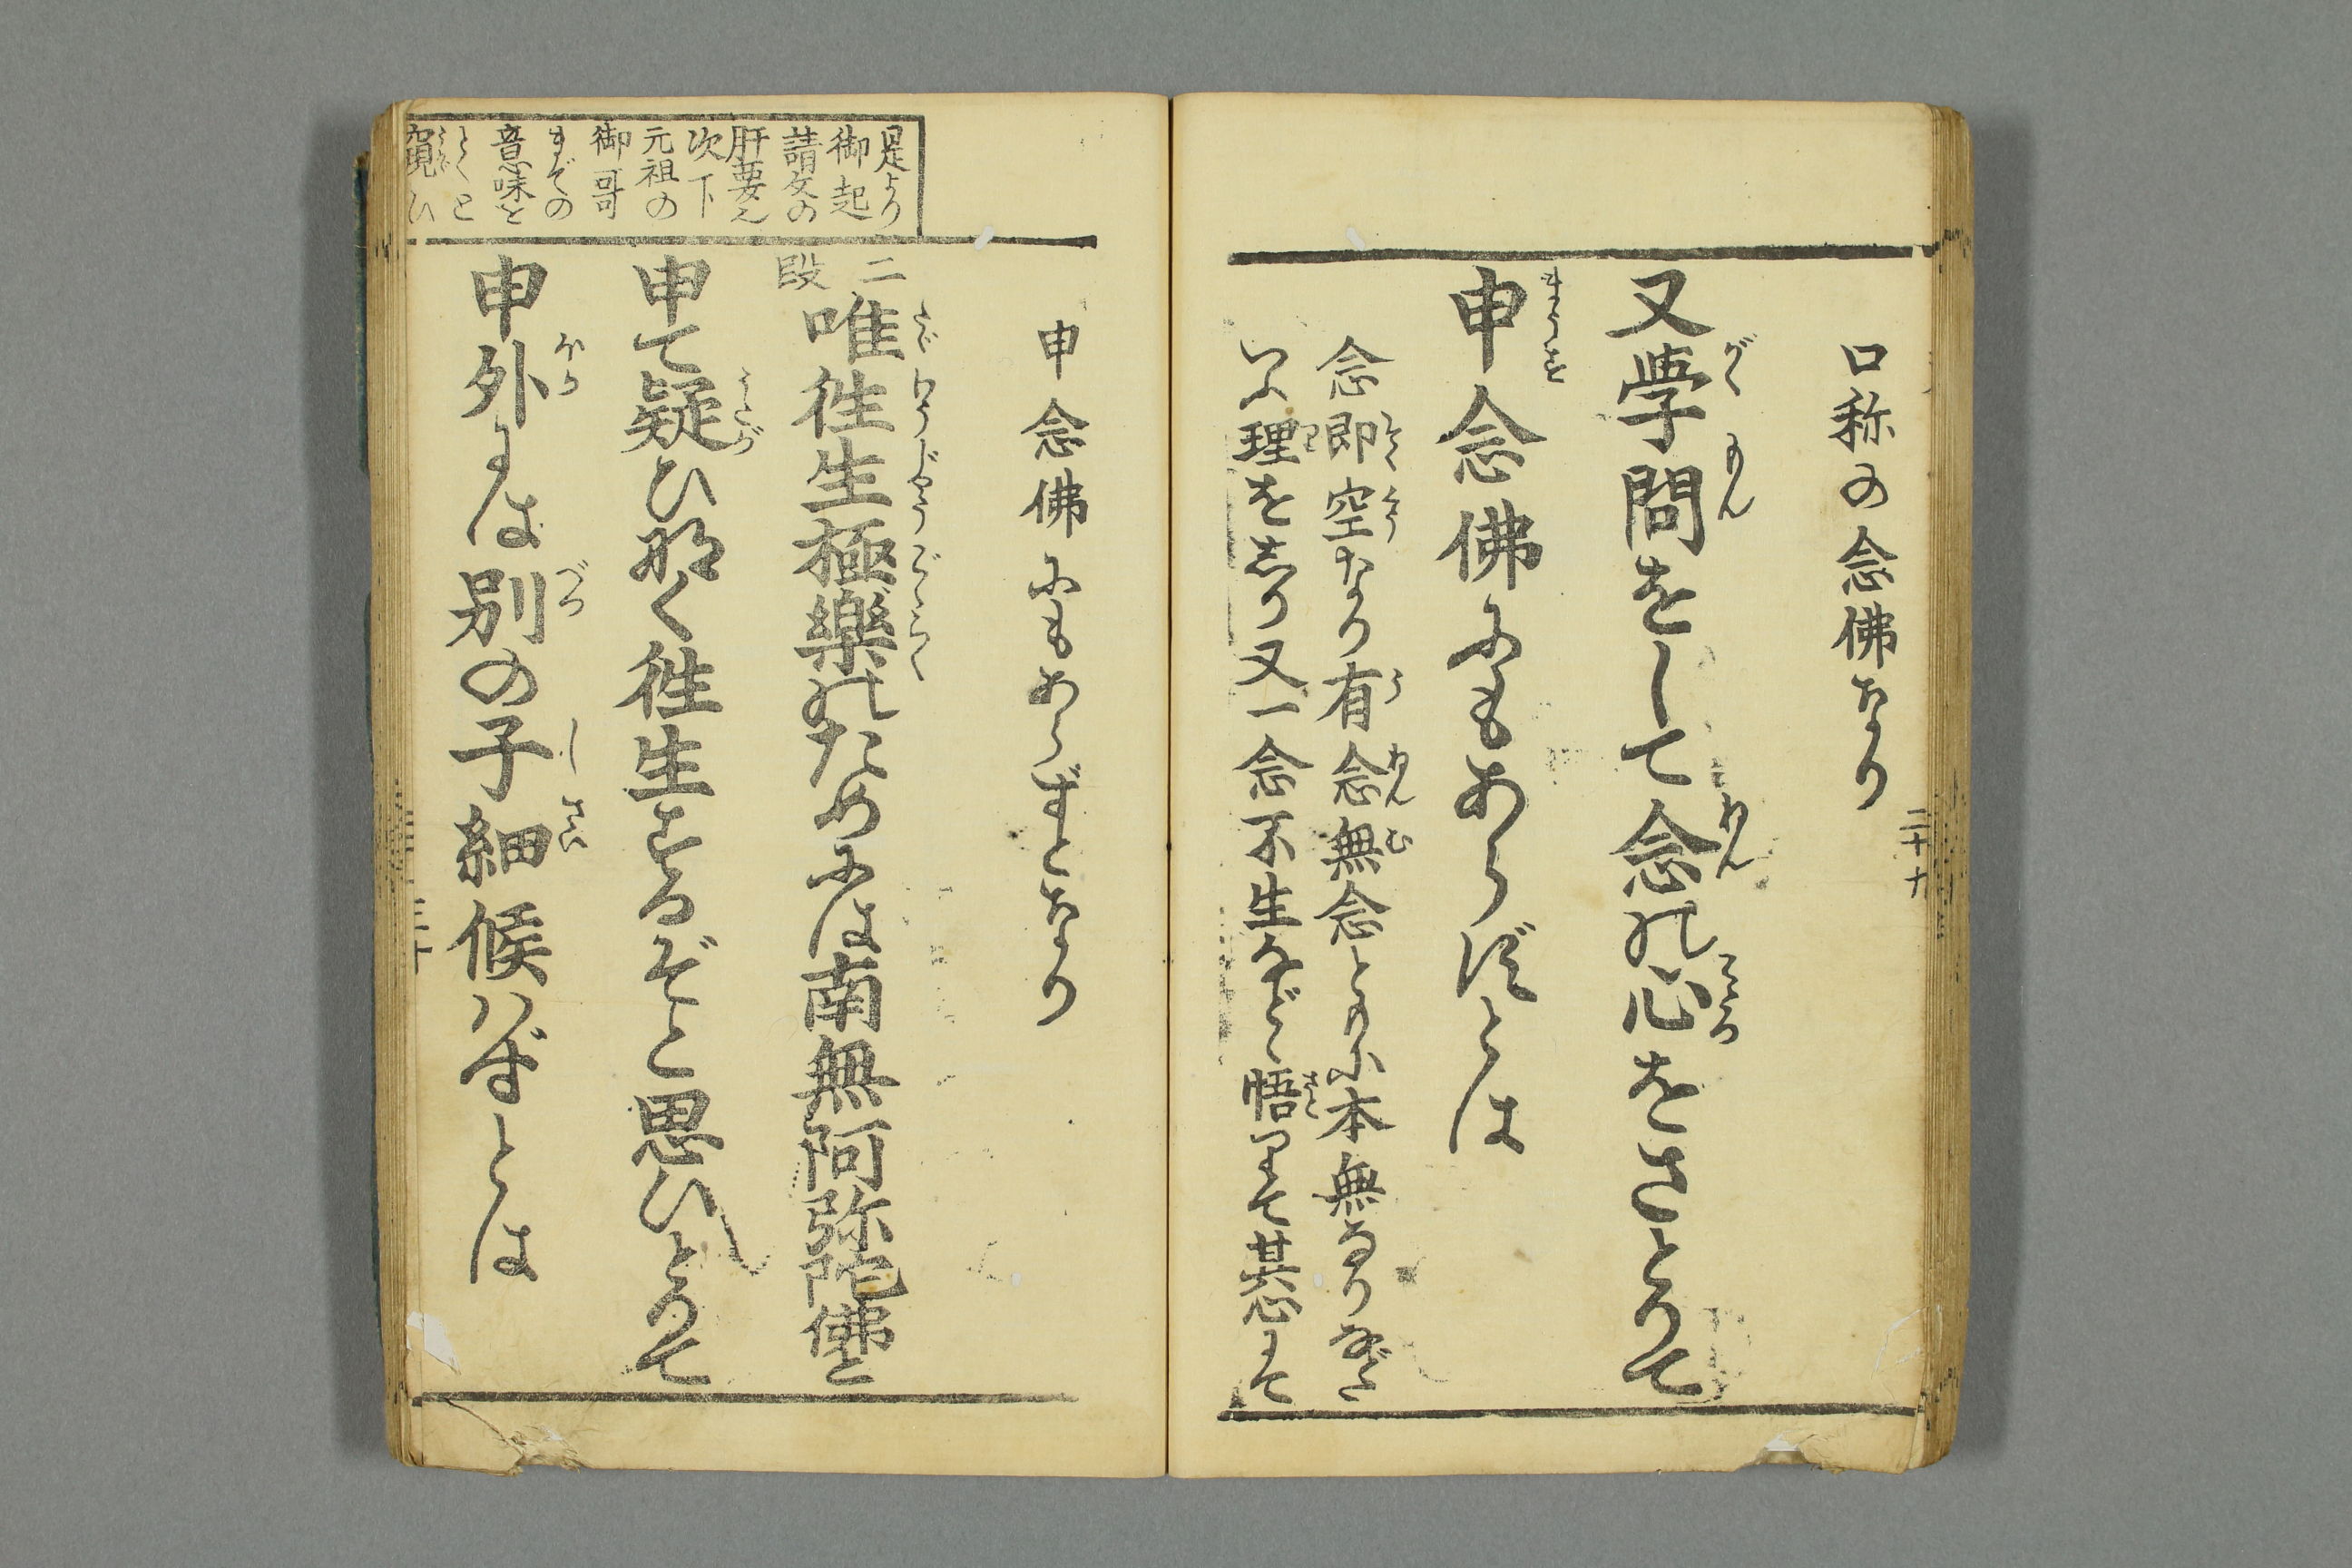 口称の念佛なり
又学問をして念の心をさとりて
申念佛にもあらずとは
念即空なり有念無念ともに本無なりなどと
いふ理をしり又一念不生などゝ悟りて其心にて
二十九
申念佛にもあらずとなり
二段
唯徃生極樂のためには南無阿弥陀佛と
申て疑ひなく徃生するぞと思ひとりて
申外には別の子細候ハずとは
是より
御起
請文の
肝要也
次下
元祖の
御哥
までの
意味を
とくと
窺ひ